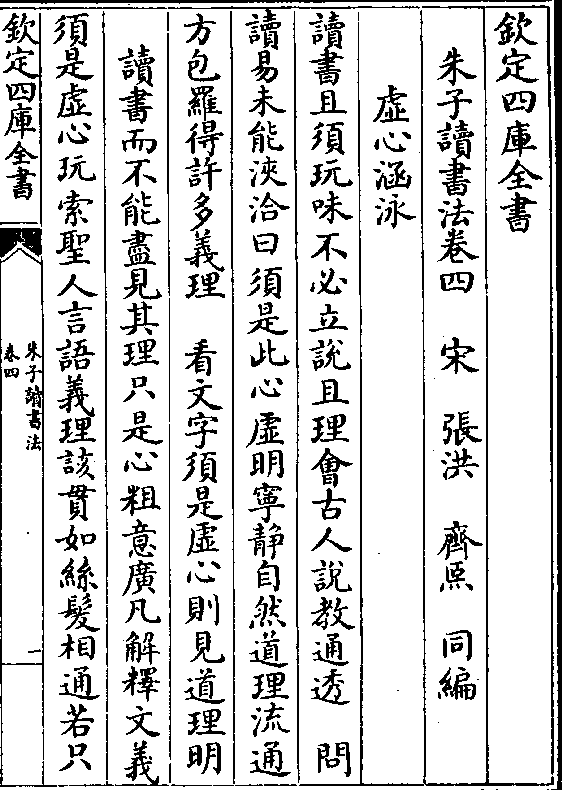 欽定四庫全書
朱子讀書法卷四　宋　張洪　齊𤋮　同編
虛心涵泳
讀書且須玩味不必立說且理會古人說教通透　問
讀易未能浹洽曰須是此心虛明寧靜自然道理流通
方包羅得許多義理　看文字須是虛心則見道理明
讀書而不能盡見其理只是心粗意廣凡解釋文義
須是虛心玩索聖人言語義理該貫如絲髮相通若只
欽定四庫全書
朱子讀書法
卷四
一